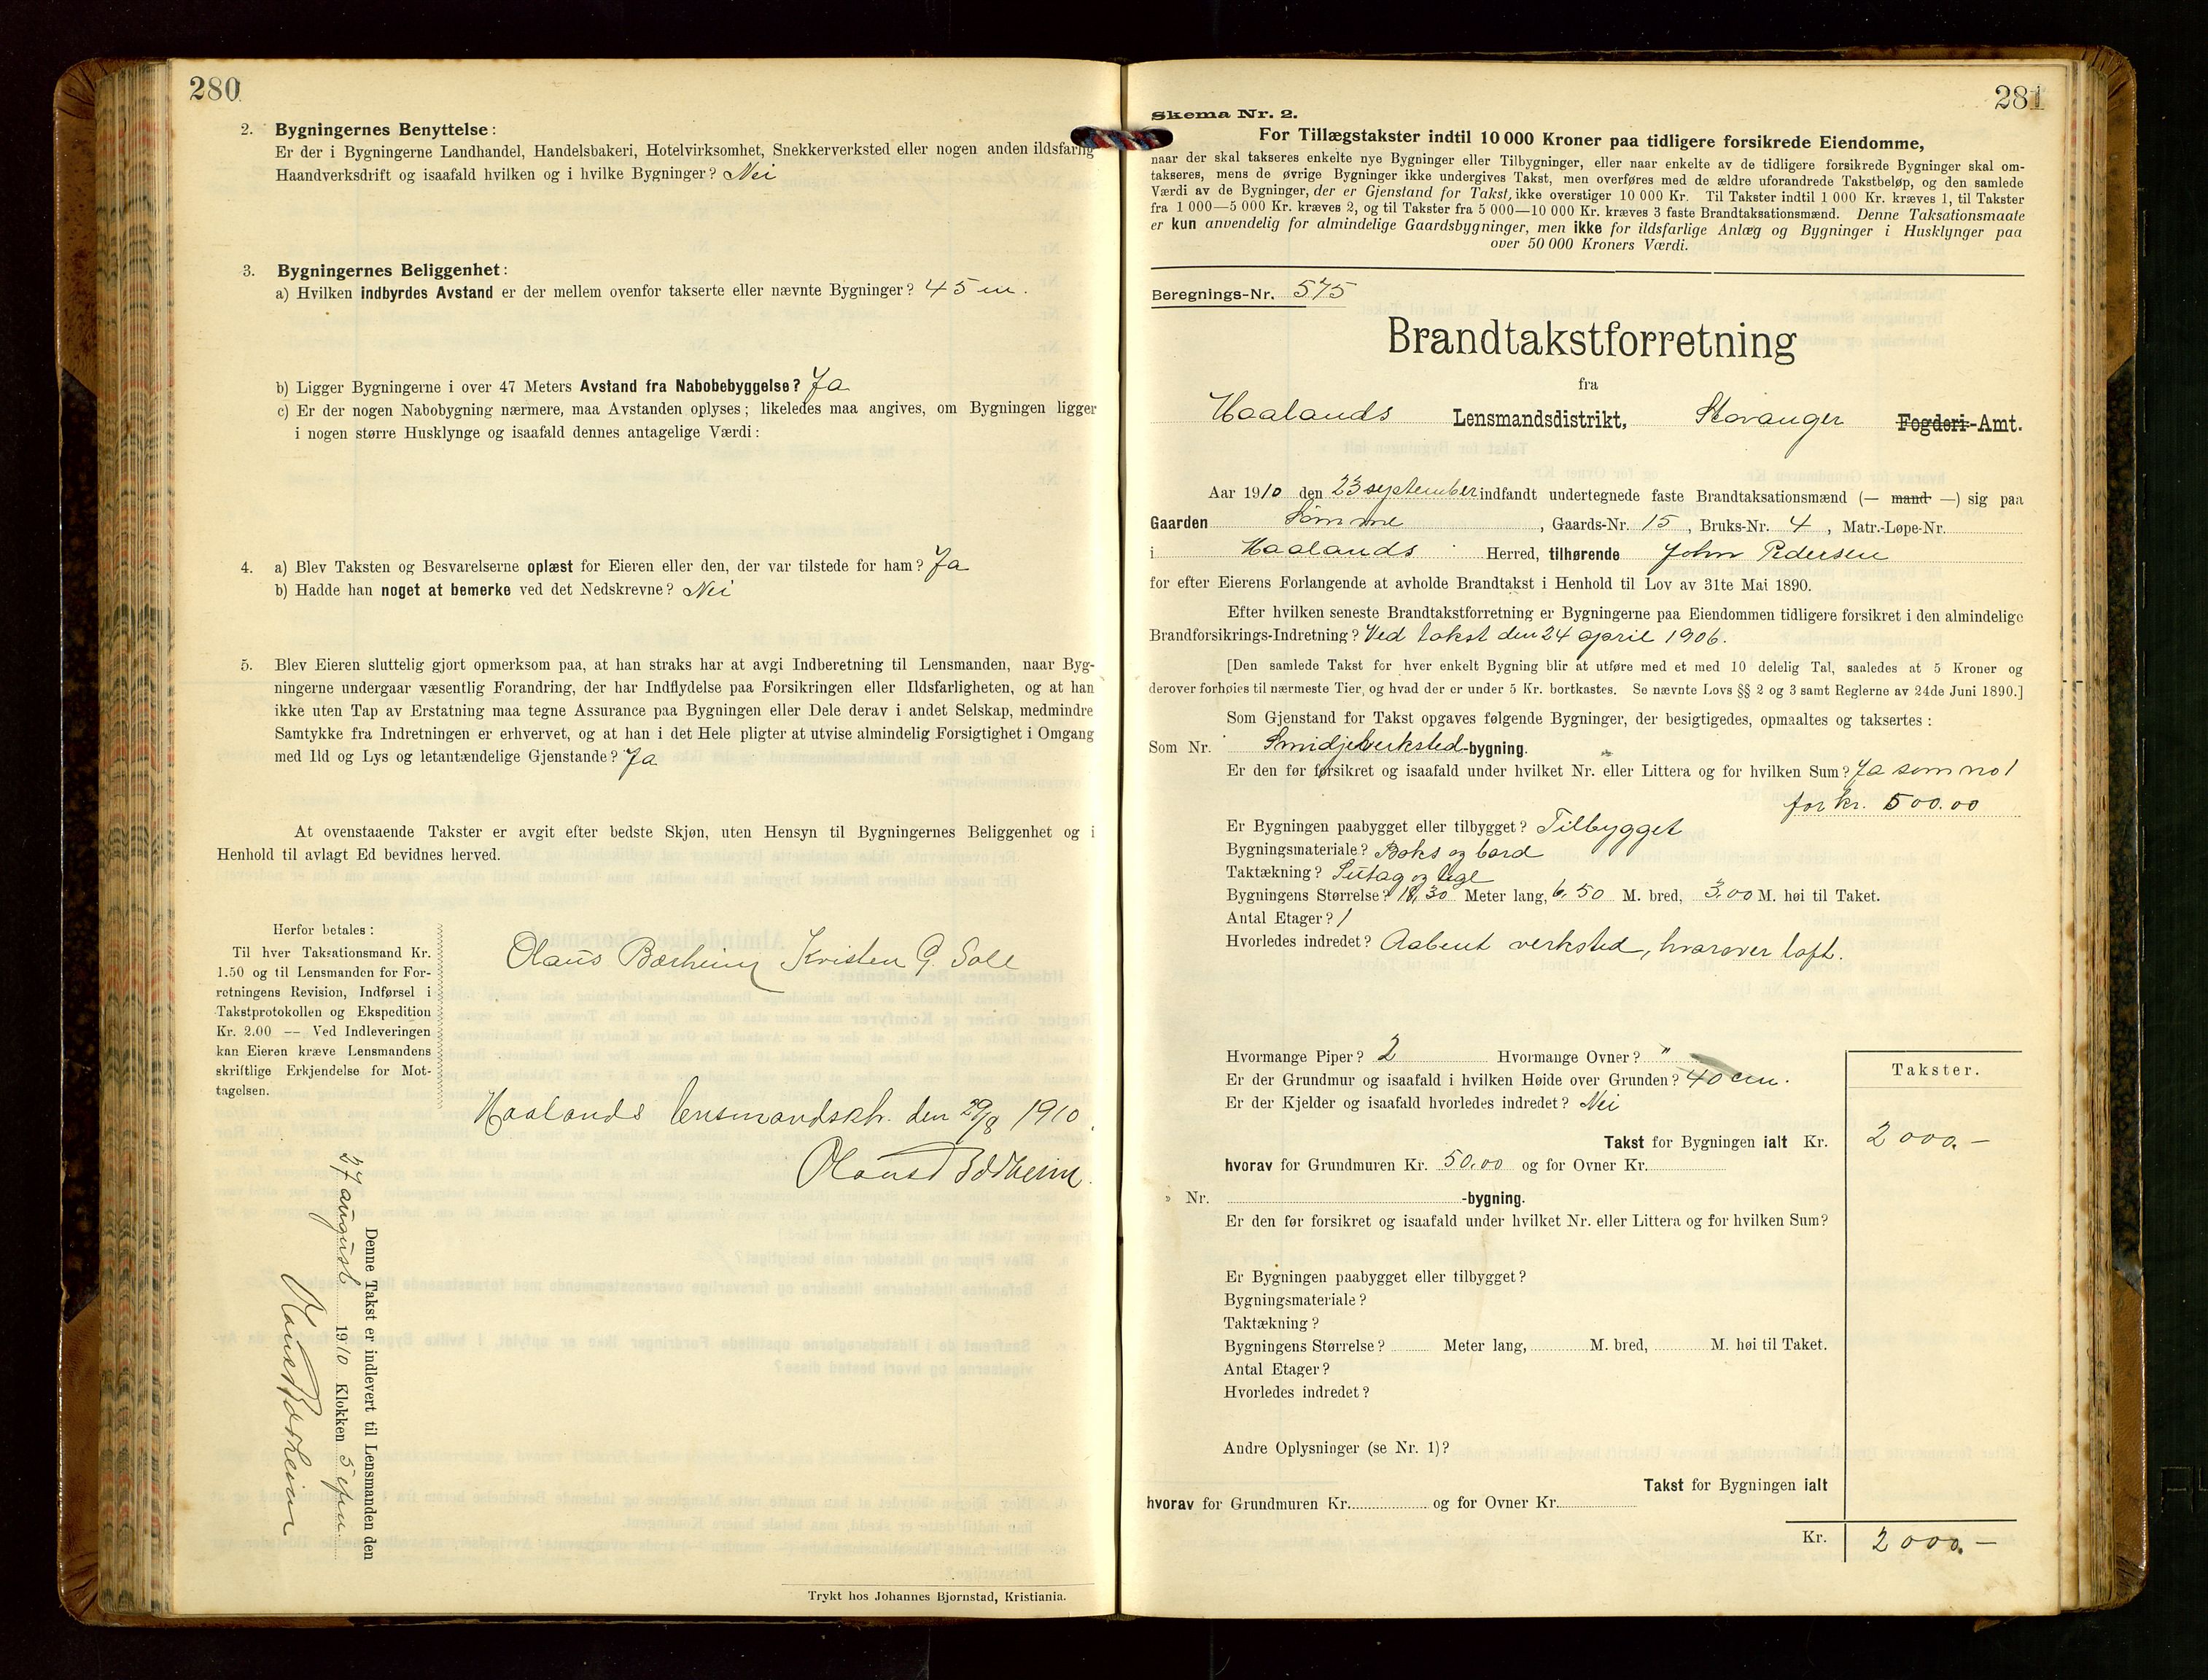 280
2. Bygningernes Benyttelse:
Er der i Bygningerne Landhandel, Handelsbakeri, Hotelvirksomhet, Snekkerverksted eller nogen anden ildsfarlig
Haandverksdrift og isaafald hvilken og i hvilke Bygninger? Nei
3. Bygningernes Beliggenhet:
a) Hvilken indbyrdes Avstand er der mellem ovenfor takserte eller nævnte Bygninger? 45 m.
b) Ligger Bygningerne i over 47 Meters Avstand fra Nabobebyggelse? Ja
c) Er der nogen Nabobygning nærmere, maa Avstanden oplyses; likeledes maa angives, om Bygningen ligger
i nogen større Husklynge og isaafald dennes antagelige Værdi:
4. a) Blev Taksten og Besvarelserne oplæst for Eieren eller den, der var tilstede for ham? Ja
b) Hadde han noget at bemerke ved det Nedskrevne? Nei
5. Blev Eieren sluttelig gjort opmerksom paa, at han straks har at avgi Indberetning til Lensmanden, naar Byg-
ningerne undergaar væsentlig Forandring, der har Indflydelse paa Forsikringen eller Ildsfarligheten, og at han
ikke uten Tap av Erstatning maa tegne Assurance paa Bygningen eller Dele derav i andet Selskap, medmindre
Samtykke fra Indretningen er erhvervet, og at han i det Hele pligter at utvise almindelig Forsigtighet i Omgang
med Ild og Lys og letantændelige Gjenstande? Ja
At ovenstaaende Takster er avgit efter bedste Skjøn, uten Hensyn til Bygningernes Beliggenhet og i
Henhold til avlagt Ed bevidnes herved.
Herfor betales:
Til hver Taksationsmand Kr.
1.50 og til Lensmanden for For-
retningens Revision, Indførsel i
Takstprotokollen og Ekspedition
Kr. 2.00 — Ved Indleveringen
kan Eieren kræve Lensmandens
skriftlige Erkjendelse for Mot-
tagelsen.
Olaus Børheim Kristen G. Sole
Haalands lensmandsktr. den 29/8 1910.
Denne Takst er indlevert til Lensmanden den
27 august 1910 Klokken 5 efm
Trykt hos Johannes Bjørnstad, Kristiania.
281
Skema Nr. 2.
For Tillægstakster indtil 10 000 Kroner paa tidligere forsikrede Eiendomme,
naar der skal takseres enkelte nye Bygninger eller Tilbygninger, eller naar enkelte av de tidligere forsikrede Bygninger skal om-
takseres, mens de øvrige Bygninger ikke undergives Takst, men overføres med de ældre uforandrede Takstbeløp, og den samlede
Værdi av de Bygninger, der er Gjenstand for Takst, ikke overstiger 10 000 Kr. Til Takster indtil 1 000 Kr. kræves 1, til Takster
fra 1 000—5 000 Kr. kræves 2, og til Takster fra 5 000—10 000 Kr. kræves 3 faste Brandtaksationsmænd. Denne Taksationsmaate
er kun anvendelig for almindelige Gaardsbygninger, men ikke for ildsfarlige Anlæg og Bygninger i Husklynger paa
over 50 000 Kroners Værdi.
Beregnings-Nr. 575
Brandtakstforretning
fra
Haalands Lensmandsdistrikt, Stavanger Fogderi-Amt.
Aar 1910 den 23 september indfandt undertegnede faste Brandtaksationsmænd (— mand —) sig paa
Gaarden Sømme, Gaards-Nr. 15, Bruks-Nr. 4, Matr.-Løpe-Nr.
i Haalands Herred, tilhørende John Pedersen
for efter Eierens Forlangende at avholde Brandtakst i Henhold til Lov av 31te Mai 1890.
Efter hvilken seneste Brandtakstforretning er Bygningerne paa Eiendommen tidligere forsikret i den almindelige
Brandforsikrings-Indretning? Ved takst den 24 april 1906.
[Den samlede Takst for hver enkelt Bygning blir at utføre med et med 10 delelig Tal, saaledes at 5 Kroner og
derover forhøies til nærmeste Tier, og hvad der er under 5 Kr. bortkastes. Se nævnte Lovs §§ 2 og 3 samt Reglerne av 24de Juni 1890.]
Som Gjenstand for Takst opgaves følgende Bygninger, der besigtigedes, opmaaltes og taksertes:
Som Nr. Smidjeverksted-bygning.
Er den før forsikret og isaafald under hvilket Nr. eller Littera og for hvilken Sum? Ja som no 1
for kr. 500.00
Er Bygningen paabygget eller tilbygget? Tilbygget
Bygningsmateriale? Boks og bord
Taktækning? Sutag og tegl
Bygningens Størrelse? 18,30 Meter lang, 6.50 M. bred, 3.00 M. høi til Taket.
Antal Etager? 1
Hvorledes indredet? Aabent verksted, hvorover loft.
Hvormange Piper? 2 Hvormange Ovner? "
Er der Grundmur og isaafald i hvilken Høide over Grunden? 40 cm.
Er der Kjelder og isaafald hvorledes indredet? Nei
Takster.
Takst for Bygningen ialt Kr. 2000.—
hvorav for Grundmuren Kr. 50.00 og for Ovner Kr.
» Nr. -bygning.
Er den før forsikret og isaafald under hvilket Nr. eller Littera og for hvilken Sum?
Er Bygningen paabygget eller tilbygget?
Bygningsmateriale?
Taktækning?
Bygningens Størrelse? Meter lang, M. bred, M. høi til Taket.
Antal Etager?
Hvorledes indredet?
Andre Oplysninger (se Nr. 1)?
Takst for Bygningen ialt
hvorav for Grundmuren Kr. og for Ovner Kr.
Kr. 2000.—